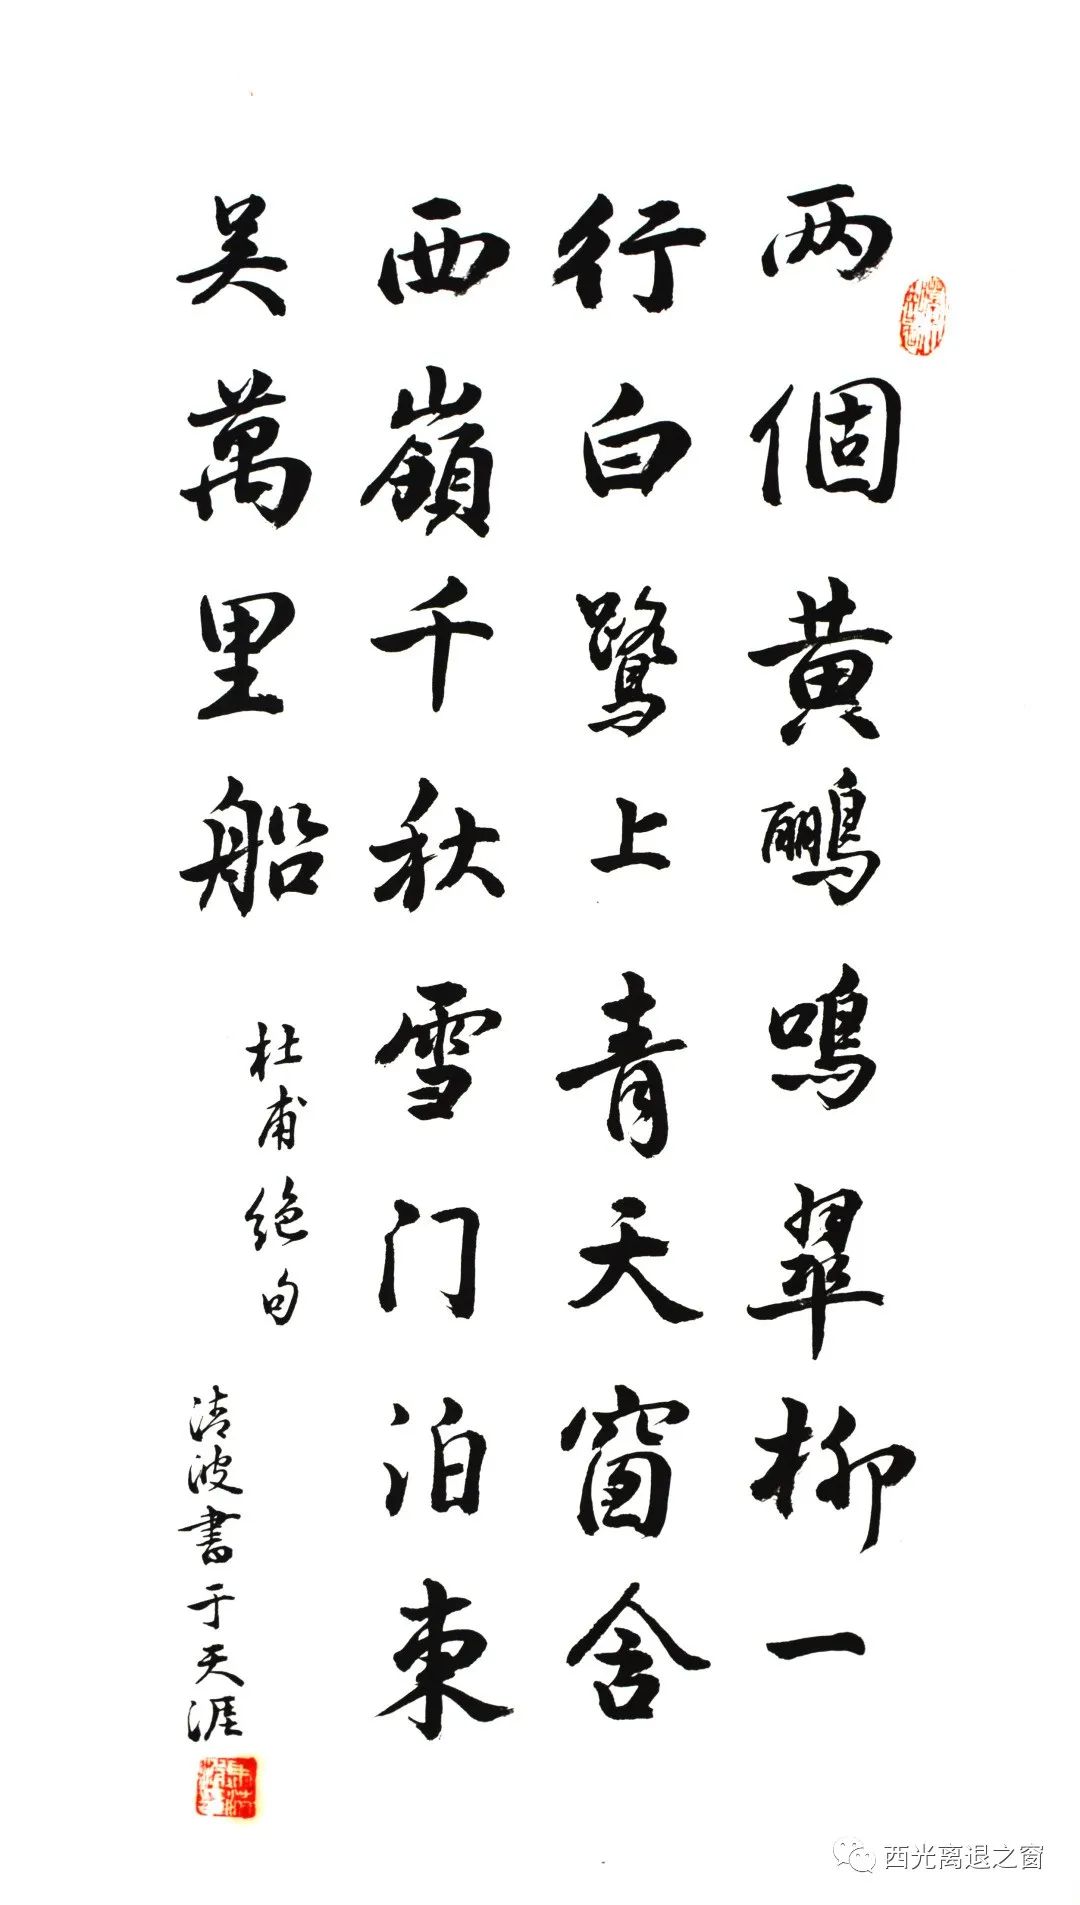 两個黄鸝鳴翠柳一
行白鷺上青天窗含
西嶺千秋雪门泊東
吴萬里船
杜甫絶句
清波書于天涯
西光离退之窗